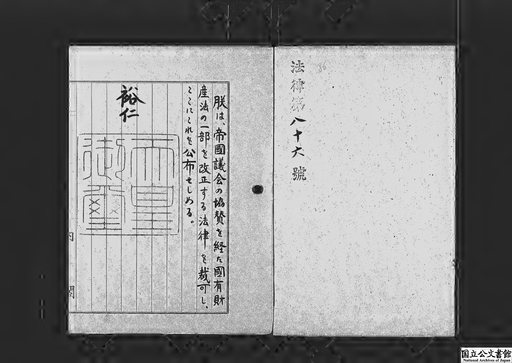 法律第八十六號
朕は、帝國議会の協賛を経た國有財
産法の一部を改正する法律を裁可し、
ここにこれを公布せしめる。
裕仁
天皇
御璽
内閣
国立公文書館
National Archives of Japan